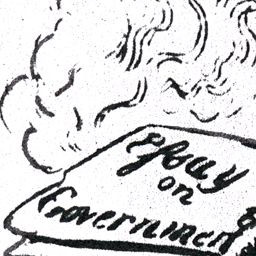 Essay
on
Government